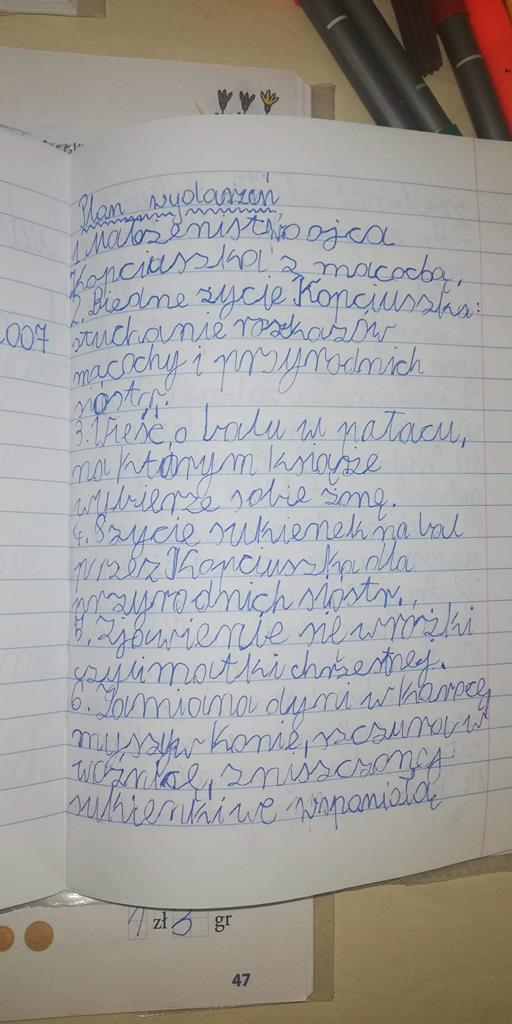 .007
Plan wydarzeń
1. Małżeństwo ojca
Kopciuszka z macochą.
2. Biedne życie Kopciuszka:
słuchanie rozkazów
macochy i przyrodnich
sióstr.
3. Wieść o balu w pałacu,
na którym książe
wybierze sobie żonę.
4. Szycie sukienek na bal
przez Kopciuszka dla
przyrodnich sióstr.
5. Zjawienie się wróżki
czyli matki chrzestnej.
6. Zamiana dyni w karocę
myszy w konie, szczura w
woźnicę, zniszczonej
sukienki we wspaniałą
1 zł 3 gr
47